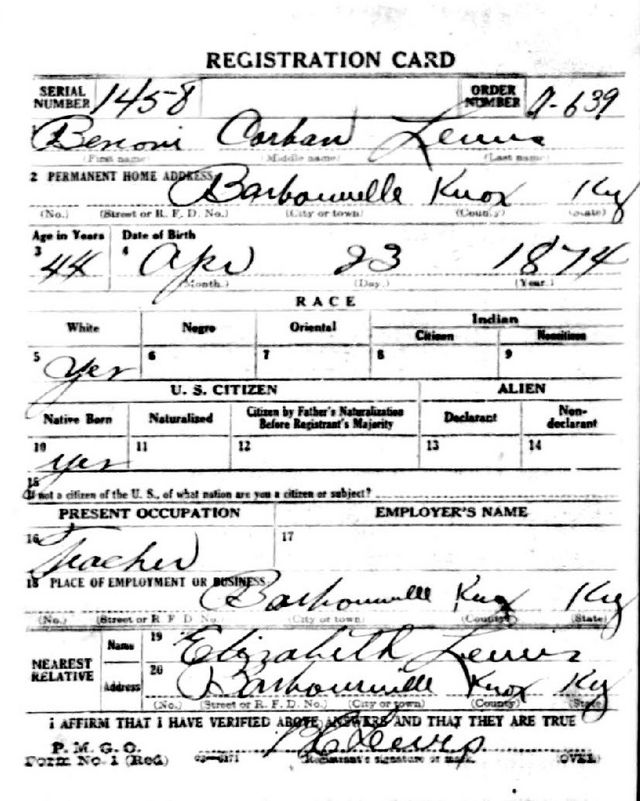 REGISTRATION CARD
SERIAL NUMBER 1458 ORDER NUMBER A-639
Benoni Corban Lewis
(First name) (Middle name) (Last name)
2 PERMANENT HOME ADDRESS Barbourville Knox Ky
(No.) (Street or R. F. D. No.) (City or town) (County) (State)
Age in Years Date of Birth
3 44 4 Apr 23 1874
(Month.) (Day.) (Year.)
RACE
White Negro Oriental Indian
Citizen Noncitizen
5 Yes 6 7 8 9
U. S. CITIZEN ALIEN
Native Born Naturalized Citizen by Father's Naturalization Before Registrant's Majority Declarant Non-declarant
10 yes 11 12 13 14
15
If not a citizen of the U. S., of what nation are you a citizen or subject?
PRESENT OCCUPATION EMPLOYER'S NAME
16 Teacher 17
18 PLACE OF EMPLOYMENT OR BUSINESS
Barbourville Knox Ky
(No.) (Street or R. F. D. No.) (City or town) (County) (State)
NEAREST RELATIVE Name 19 Elizabeth Lewis
Address 20 Barbourville Knox Ky
(No.) (Street or R. F. D. No.) (City or town) (County) (State)
I AFFIRM THAT I HAVE VERIFIED ABOVE ANSWERS AND THAT THEY ARE TRUE
P. M. G. O.
Form No. 1 (Red) 03-6171 B C Lewis
Registrant's signature or mark. (OVER)